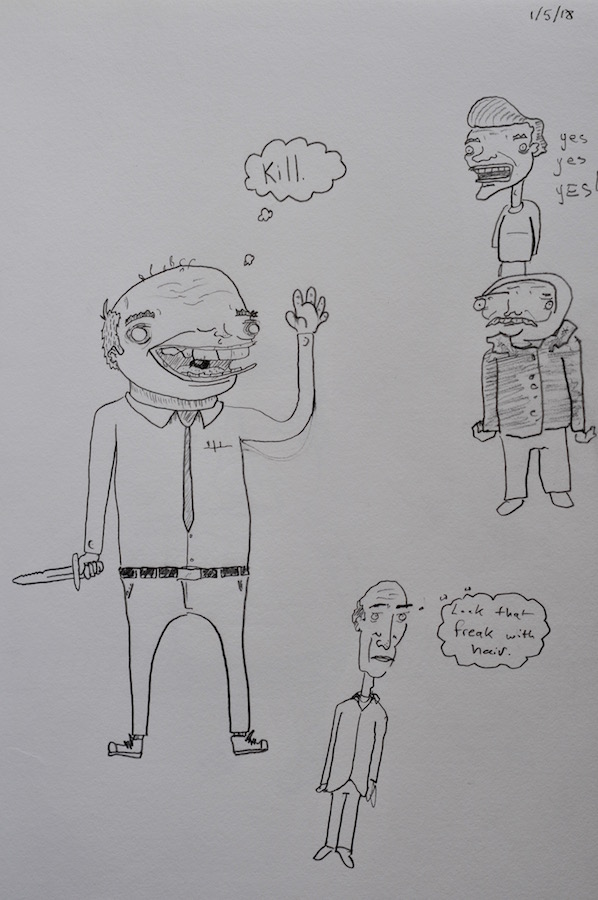 1/5/18
Kill.
yes
yes
yES!
Look that
freak with
hair.